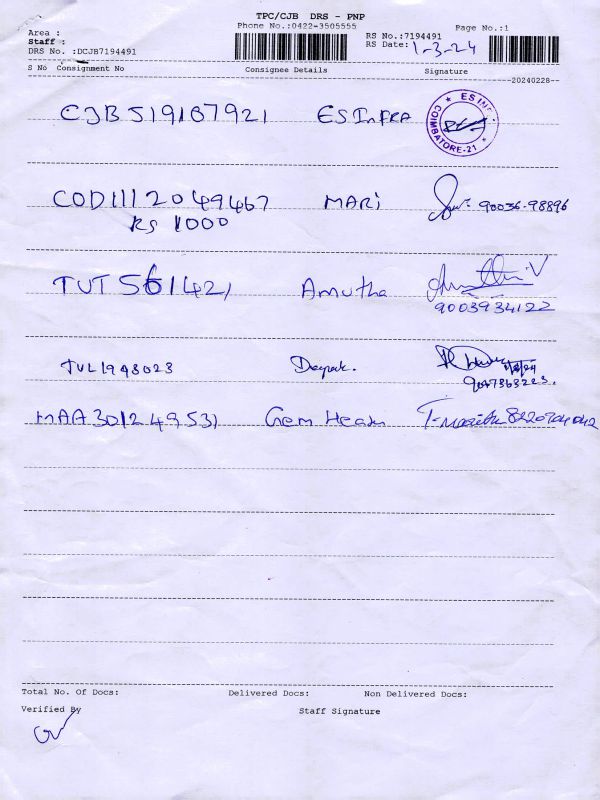 TPC/CJB DRS - PNP
Phone No.:0422-3505555 Page No.:1
Area :
Staff :
RS No.:7194491
DRS No. :DCJB7194491 RS Date: 1-3-24
S No Consignment No Consignee Details Signature
20240228
CJB519167921 ES InFRA ES INF COIMBATORE-21
COD1112049467 MARi 90036-98896
RS 1000
TUT561421 Amutha
9003934122
TUL1948023 Deepak.
MAA301249531 Gem Heath
Total No. Of Docs: Delivered Docs: Non Delivered Docs:
Verified By Staff Signature